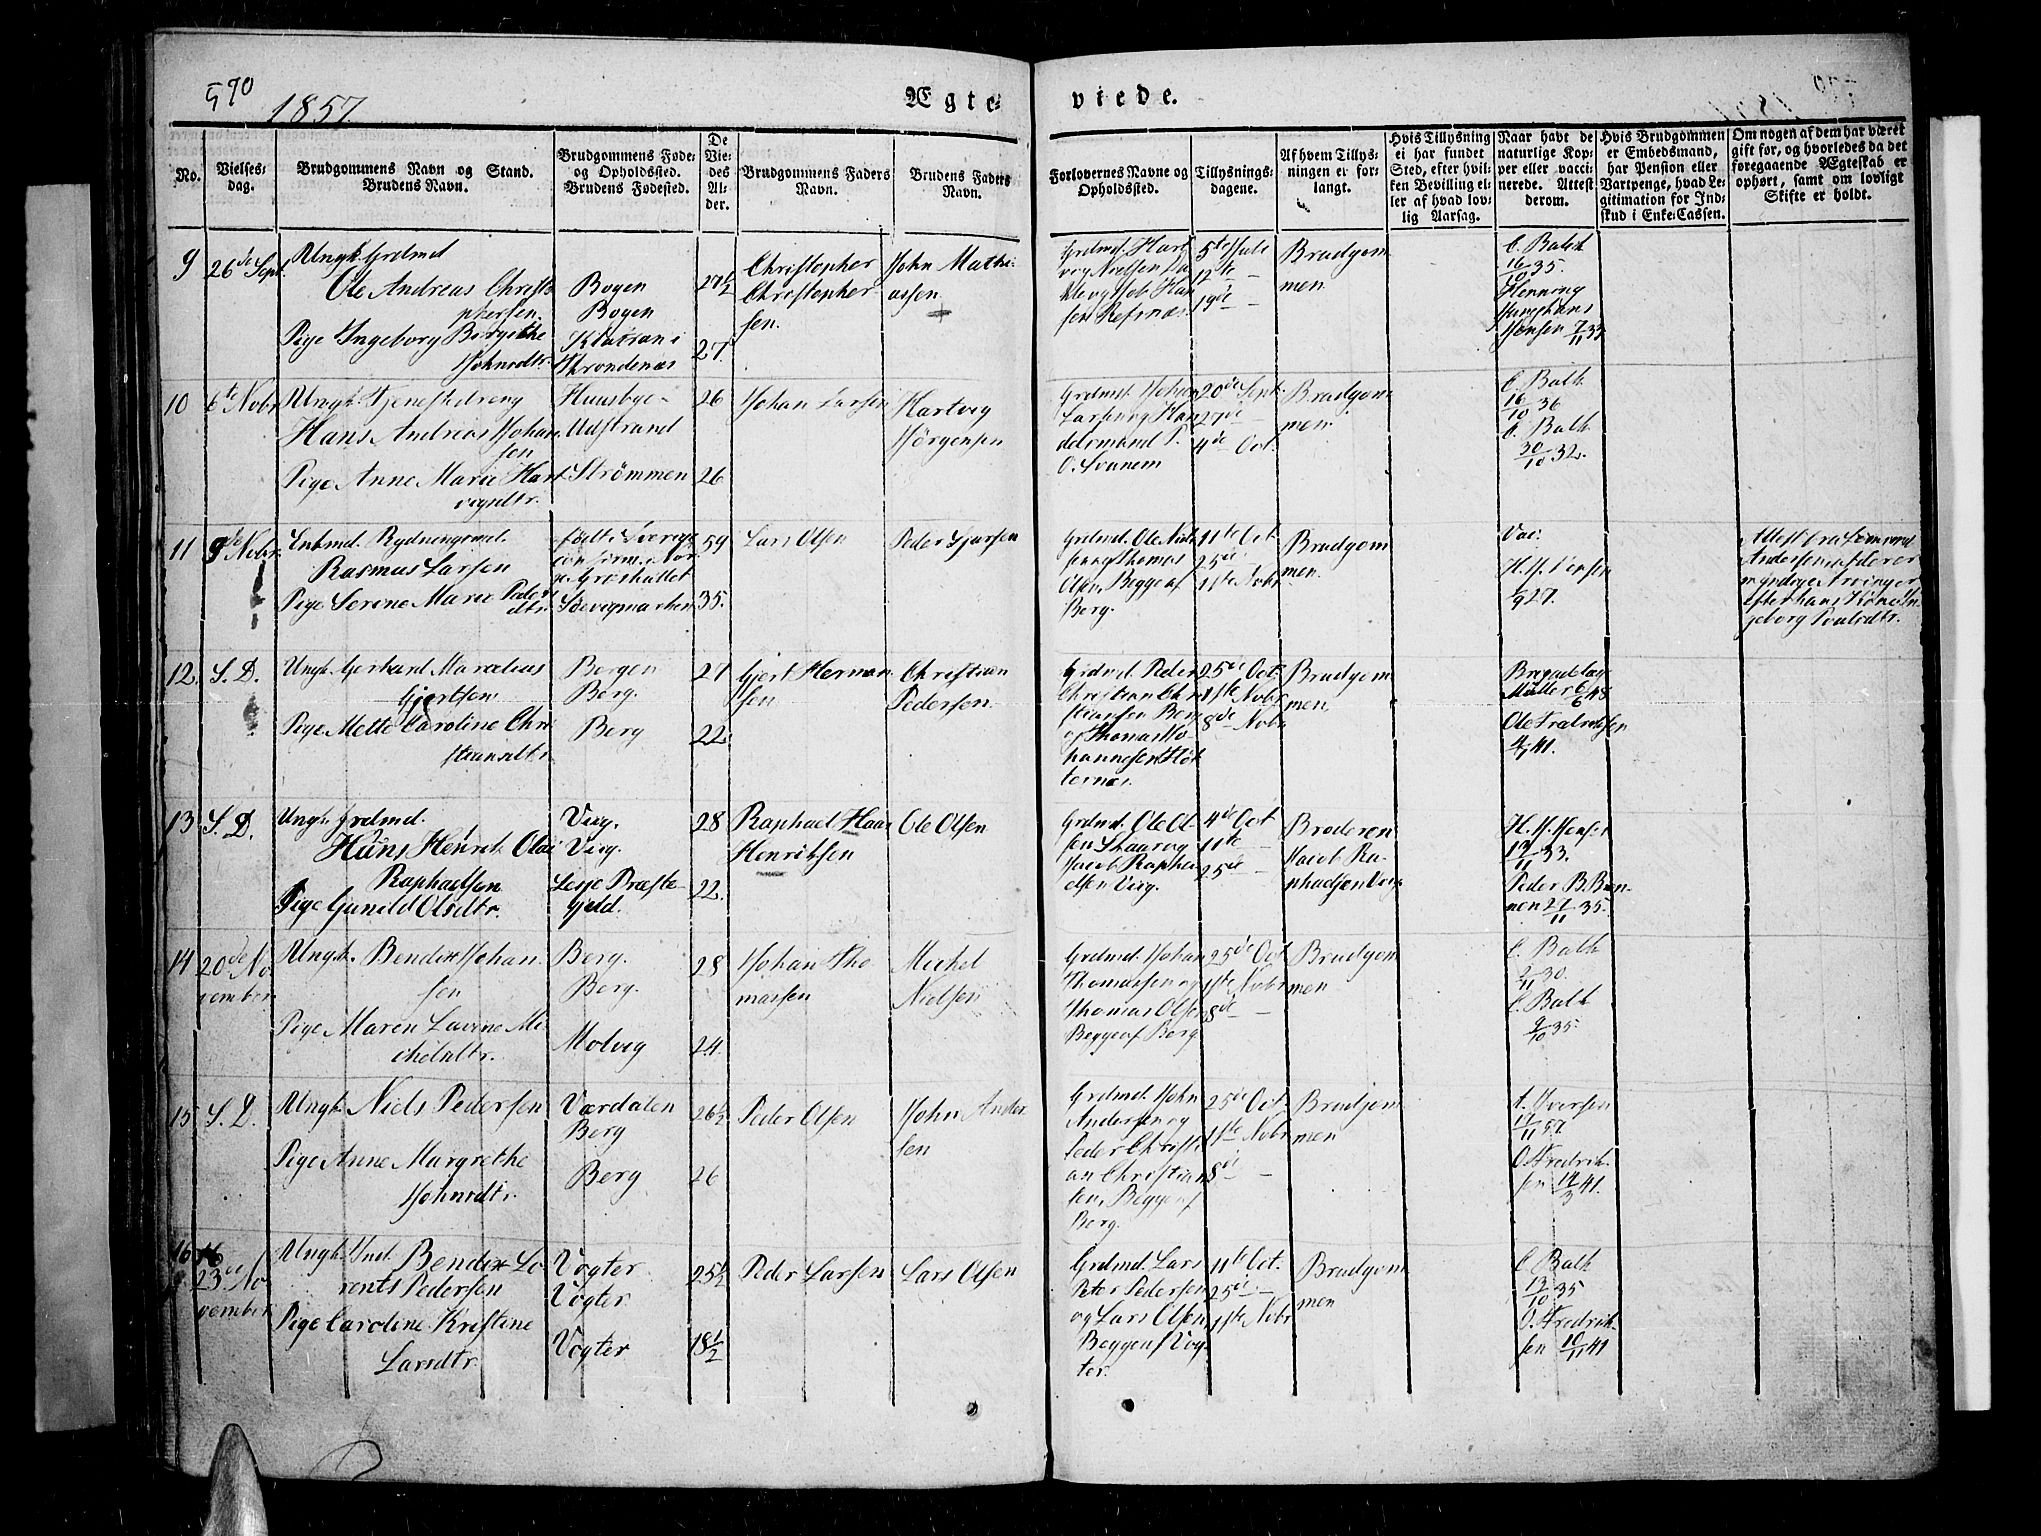 590
1857
Ægte-
viede.
No.
Vielses-
dag.
Brudgommens Navn og Stand.
Brudens Navn.
Brudgommens Føde-
og Opholdssted.
Brudens Fødested.
De
Vie-
des
Al-
der.
Brudgommens Faders
Navn.
Brudens Faders
Navn.
Forlovernes Navne og
Opholdssted.
Tillysnings-
dagene.
Af hvem Tillys-
ningen er for-
langt.
Hvis Tillysning
ei har fundet
Sted, efter hvil-
ken Bevilling el-
ler af hvad lov-
lig Aarsag.
Naar havt de
naturlige Kop-
per eller vacci-
nerede. Attest
derom.
Hvis Brudgommen
er Embedsmand,
har Pension eller
Vartpenge, hvad Le-
gitimation for Ind-
skud i Enke-Cassen.
Om nogen af dem har været
gift før, og hvorledes da det
foregaaende Ægteskab er
ophørt, samt om lovligt
Skifte er holdt.
9
26de Sept.
Ungk. Grdmd
Ole Andreas Christo
phersen.
Pige Ingeborg Birgithe
Johnsdtr.
Bogen
Bogen
i
Throndenæs
27½
27
Christopher
Christopher
sen.
John Mathi-
assen
Grdmd. Hart
vig Nielsen
og Job Han
sen Refsnæs
5te Juli
12te —
19de —
Brudgom
men.
C. Balch
16/10 35.
Henning
Junghans
Jensen 7/11 33
10
6te Nobr
Ungk. Tjenestedreng
Hans Andreas Johan
sen
Pige Anne Marie Hart
vigsdtr.
Huusbye-
Udstrand
Strømmen
26
26
Johan Larsen
Hartvig
Jørgensen
Grdmd. Johan
Larsen og Han
delsmand P.
O. Svanem
20de Sept.
27de —
4de Oct.
Brudgom
men.
C. Balch
16/10 36
C. Balch
30/10 32.
11
9de Nobr.
Enkmd. Rydningsmd.
Rasmus Larsen
Pige Serine Marie Peder
dtr.
født i Sverige
confirm. i Nor
ge. Grøshullet
Sdevigmarken
59
35.
Lars Olsen
Peder Larsen
Grdmd. Ole
sen og Thomas
Olsen, Begge af
Berg.
11te Oct
25de
1ste Nobr
Brudgom
men.
Vac.
H. J. Jensen
9 27.
Attest fra
Andersen af
myndige Arvinger
efter hans Kone In-
geborg Poulsdtr.
12.
S. D.
Ungk. Gerhard Marcelius
Gjertsen
Pige Mette Caroline Chri
stiansdtr.
Bergen
Berg.
Berg
27
22.
Gjert Herman
sen
Christian
Pedersen.
Grdmd. Peder
Christian Chri
stiansen Berg
og Thomas Jo-
hannesen Høt
ternes.
25de Oct.
1ste Nobr
8de Nobr
Brudgom
men.
Brigadelæg
Müller 6/6 48
Ole Fredriksen
41.
13.
S. D.
Ungk. Grdmd.
Hans Henrik Olai
Raphaelsen
Pige Gunild Olsdtr.
Viig.
Viig.
Lesje Præste-
Gjeld.
28
22.
Raphael Haas
Henriksen
Ole Olsen
Grdmd. Ole Ol-
sen Skaar og
Jacob Rapha-
elsen Viig.
4de Oct
11te —
25de
Broderen
Jacob Ra-
phaelsen Viig
H. J. Jensen
13/11 33.
Peder B. Bur-
men 27/11 35.
14
20de No
vember
Ungk. Bendix Johan
sen
Pige Maren Lavine Mi-
chelsdtr.
Berg.
Berg.
Molvig
28
24.
Johan Tho
massen
Michel
Nielsen
Grdmd. Johan
Thomassen og
Thomas Olsen
Begge af Berg
25de Oct
1ste Nobr
8de —
Brudgom
men
C. Balch
2/11 30.
C. Balch
9/10 35.
15
S. D.
Ungk. Niels Pedersen
Pige Anne Margrethe
Johnsdtr.
Værdalen
Berg
Berg
26½
26
Peder Olsen
John Ander
sen
Grdmd. John
Andersen og
Peder Christi
an Christian
sen, Begge af
Berg.
25de Oct.
1ste Nobr
8de —
Brudgom
men
A. Iversen
17/11 57.
O. Fredrik-
sen 14/3 41.
16
23de No
vember
Ungk. Ind. Bendix Lo
rents Pedersen
Pige Caroline Kristine
Larsdtr.
Vogter
Vogter
Vogter
25½
18½
Peder Larsen
Lars Olsen
Grdmd. Lars
Peter Pedersen
og Lars Olsen
Begge af Vog-
ter.
11te Oct.
25de —
1ste Nobr
Brudgom
men
C. Balch
13/10 35
O. Fredrik-
sen 10/11 41